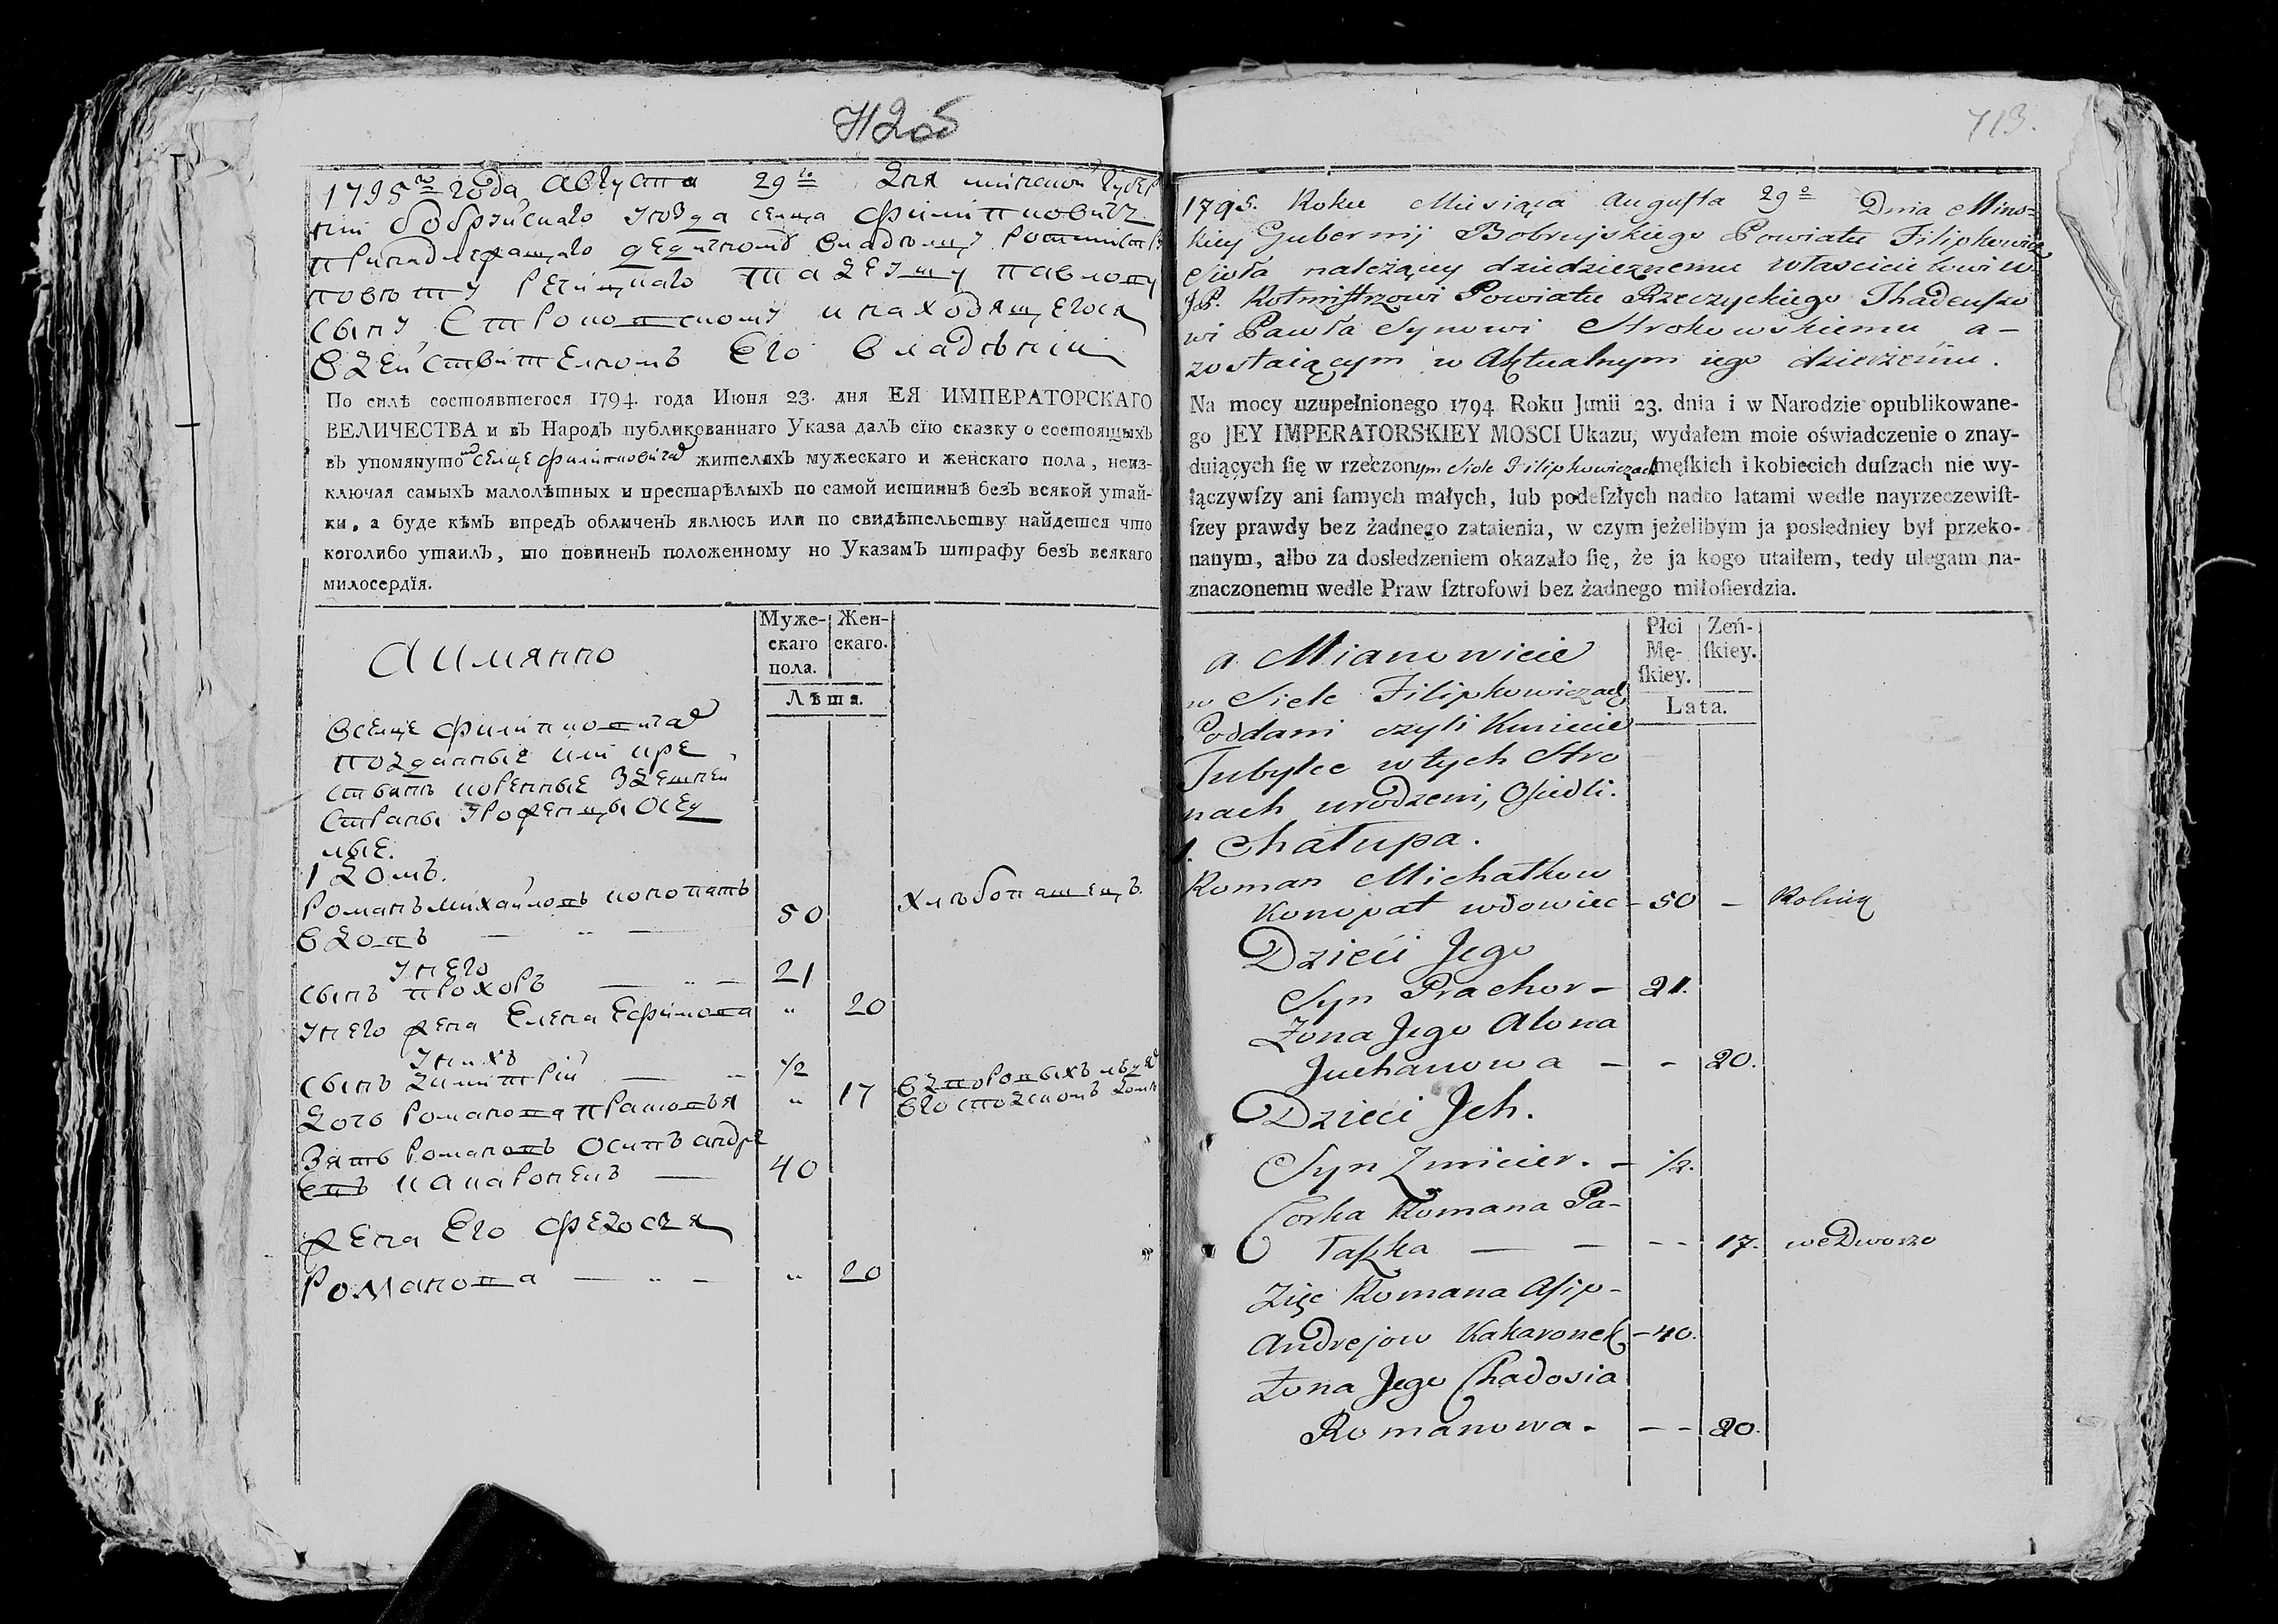 712об
1795го года августа 29го дня минской губер
ніи бобрҙйскаго уезда селца филипковичъ
принадлежащаго дедичному владелцу ротмистру
повету речицкаго тадеушу павлову
сыну Строковскому и находящегося
в действительномъ его владѣніи
По силѣ состоявшегося 1794. года Июня 23. дня ЕЯ ИМПЕРАТОРСКАГО
ВЕЛИЧЕСТВА и въ Народъ публикованнаго Указа далъ сїю сказку о состоящыхъ
въ упомянутомъ селце филипковичах жителяхъ мужескаго и женскаго пола, неиз-
ключая самыхъ малолѣтных и престарѣлыхъ по самой истиннѣ безъ всякой утай-
ки, а буде кѣмъ впредъ обличенъ явлюсь или по свидѣтельству найдется что
коголибо утаилъ, то повиненъ положенному по Указамъ штрафу безъ всякаго
милосердїя.
Муже-скаго пола. Жен-скаго.
Лѣта.
А имянно
в селце филипковичах
подданные или кре
стьянъ коренные здешней
страны уроженцы осед
лые.
1 домъ.
Романъ михайловъ конопатъ
вдовъ — " — 50 хлѣбопашецъ.
у него
сынъ прохоръ — " — 21
у него жена Елена Ефимова " 20
у нихъ
сынъ димитрій — " 1/2
дочь романова прасковья " 17 в дворовыхъ людях
в господскомъ доме
зять романовъ осипъ андре
евъ какаронекъ — 40
жена его федосья
романова — " — " 20
713.
1795. Roku Miesiąca Augusta 29o Dnia Mins=
kiey Gubernij Bobrujskiego Powiatu Filipkowicz
Sioła należący dziedzicznemu właścicielowi W.
JP. Rotmistrzowi Powiatu Rzeczyckiego Thadeuszo
wi Pawła Synowi Strokowskiemu a –
zostaiącym w Aktualnym iego dzierżeniu.
Na mocy uzupełnionego 1794 Roku Junii 23. dnia i w Narodzie opublikowane-
go JEY IMPERATORSKIEY MOSCI Ukazu, wydałem moie oświadczenie o znay-
duiących ſię w rzeczonym Siole Filipkowiczach męſkich i kobiecich duſzach nie wy-
łączywſzy ani ſamych małych, lub podeſzłych nadto latami wedle nayrzeczewiſt-
ſzey prawdy bez żadnego zataienia, w czym jeżelibym ja posledniey był przeko-
nanym, albo za dosledzeniem okazało ſię, że ja kogo utaiłem, tedy ulegam na-
znaczonemu wedle Praw ſztrofowi bez żadnego miłoſierdzia.
Płci Mę-ſkiey. Zeń-ſkiey.
Lata.
a Mianowicie
w Siele Filipkowiczach
Poddani czyli Kmiecie
Tubylce w tych Stro
nach urodzeni, Osiedli.
1. Chałupa.
Roman Michałkow
Konopat wdowiec – 50 – Rolnik
Dzieci Jego
Syn Prachor – 21.
Żona Jego Alona
Juchanowa – – 20.
Dzieci Jch.
Syn Zmicier. – 1/2.
Corka Romana Pa-
raſzka — – – – 17. we Dworze
Zięc Romana Asip-
Andrejow Kakaronek – 40.
Żona Jego Chadosia
Romanowa. – – 20.